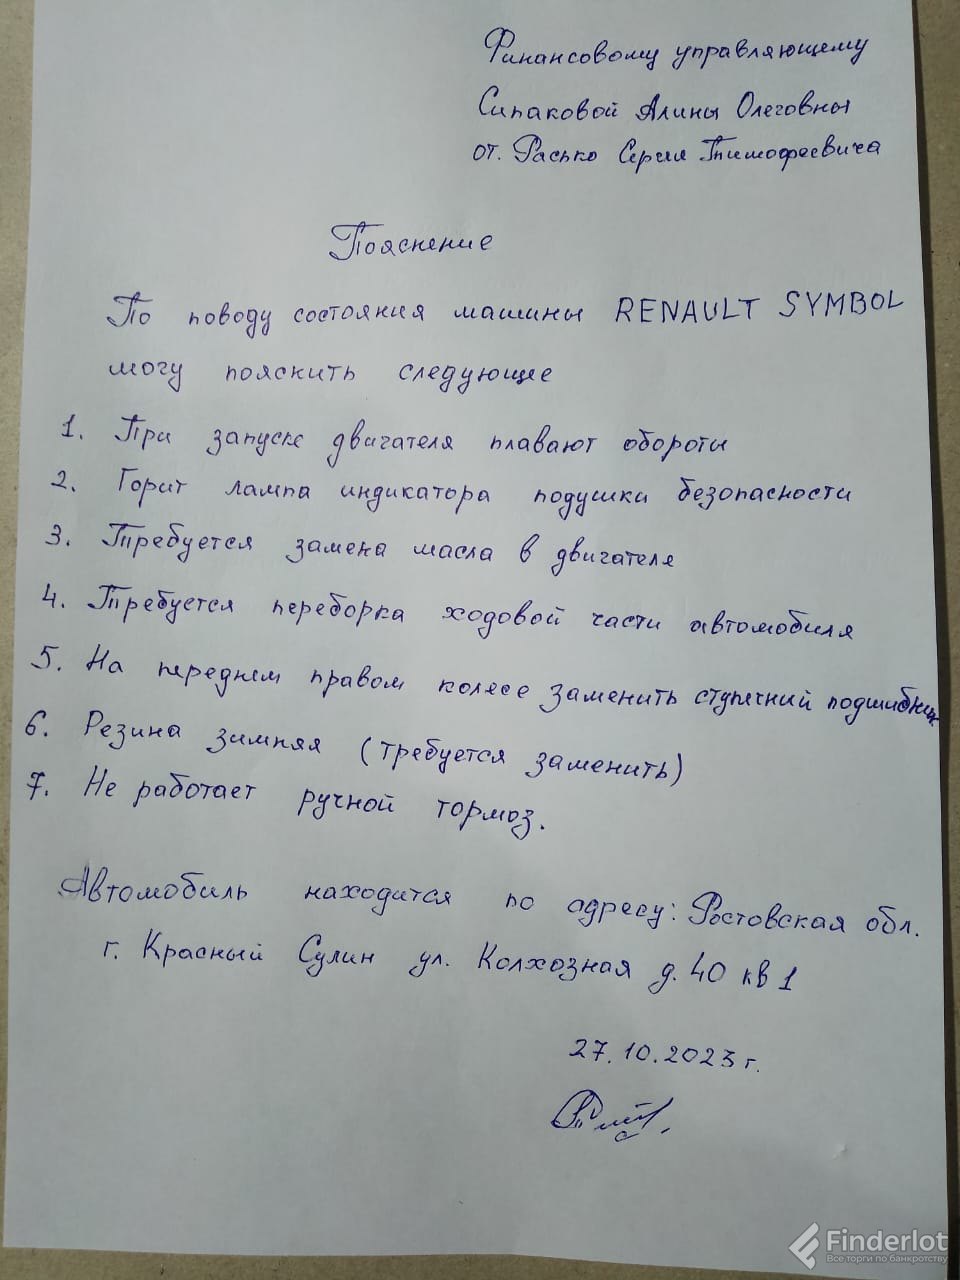 Финансовому управляющему
Сипаковой Алины Олеговны
от. Расько Сергея Тимофеевича
Пояснение
По поводу состояния машины RENAULT SYMBOL
могу пояснить следующее
1. При запуске двигателя плавают обороты
2. Горит лампа индикатора подушки безопасности
3. Требуется замена масла в двигателе
4. Требуется переборка ходовой части автомобиля
5. На переднем правом колесе заменить ступичный подшибник
6. Резина зимняя (требуется заменить)
7. Не работает ручной тормоз.
Автомобиль находится по адресу: Ростовская обл.
г. Красный Сулин ул. Колхозная д. 40 кв 1
27.10.2023 г.
Finderlot
Все торги по банкротству